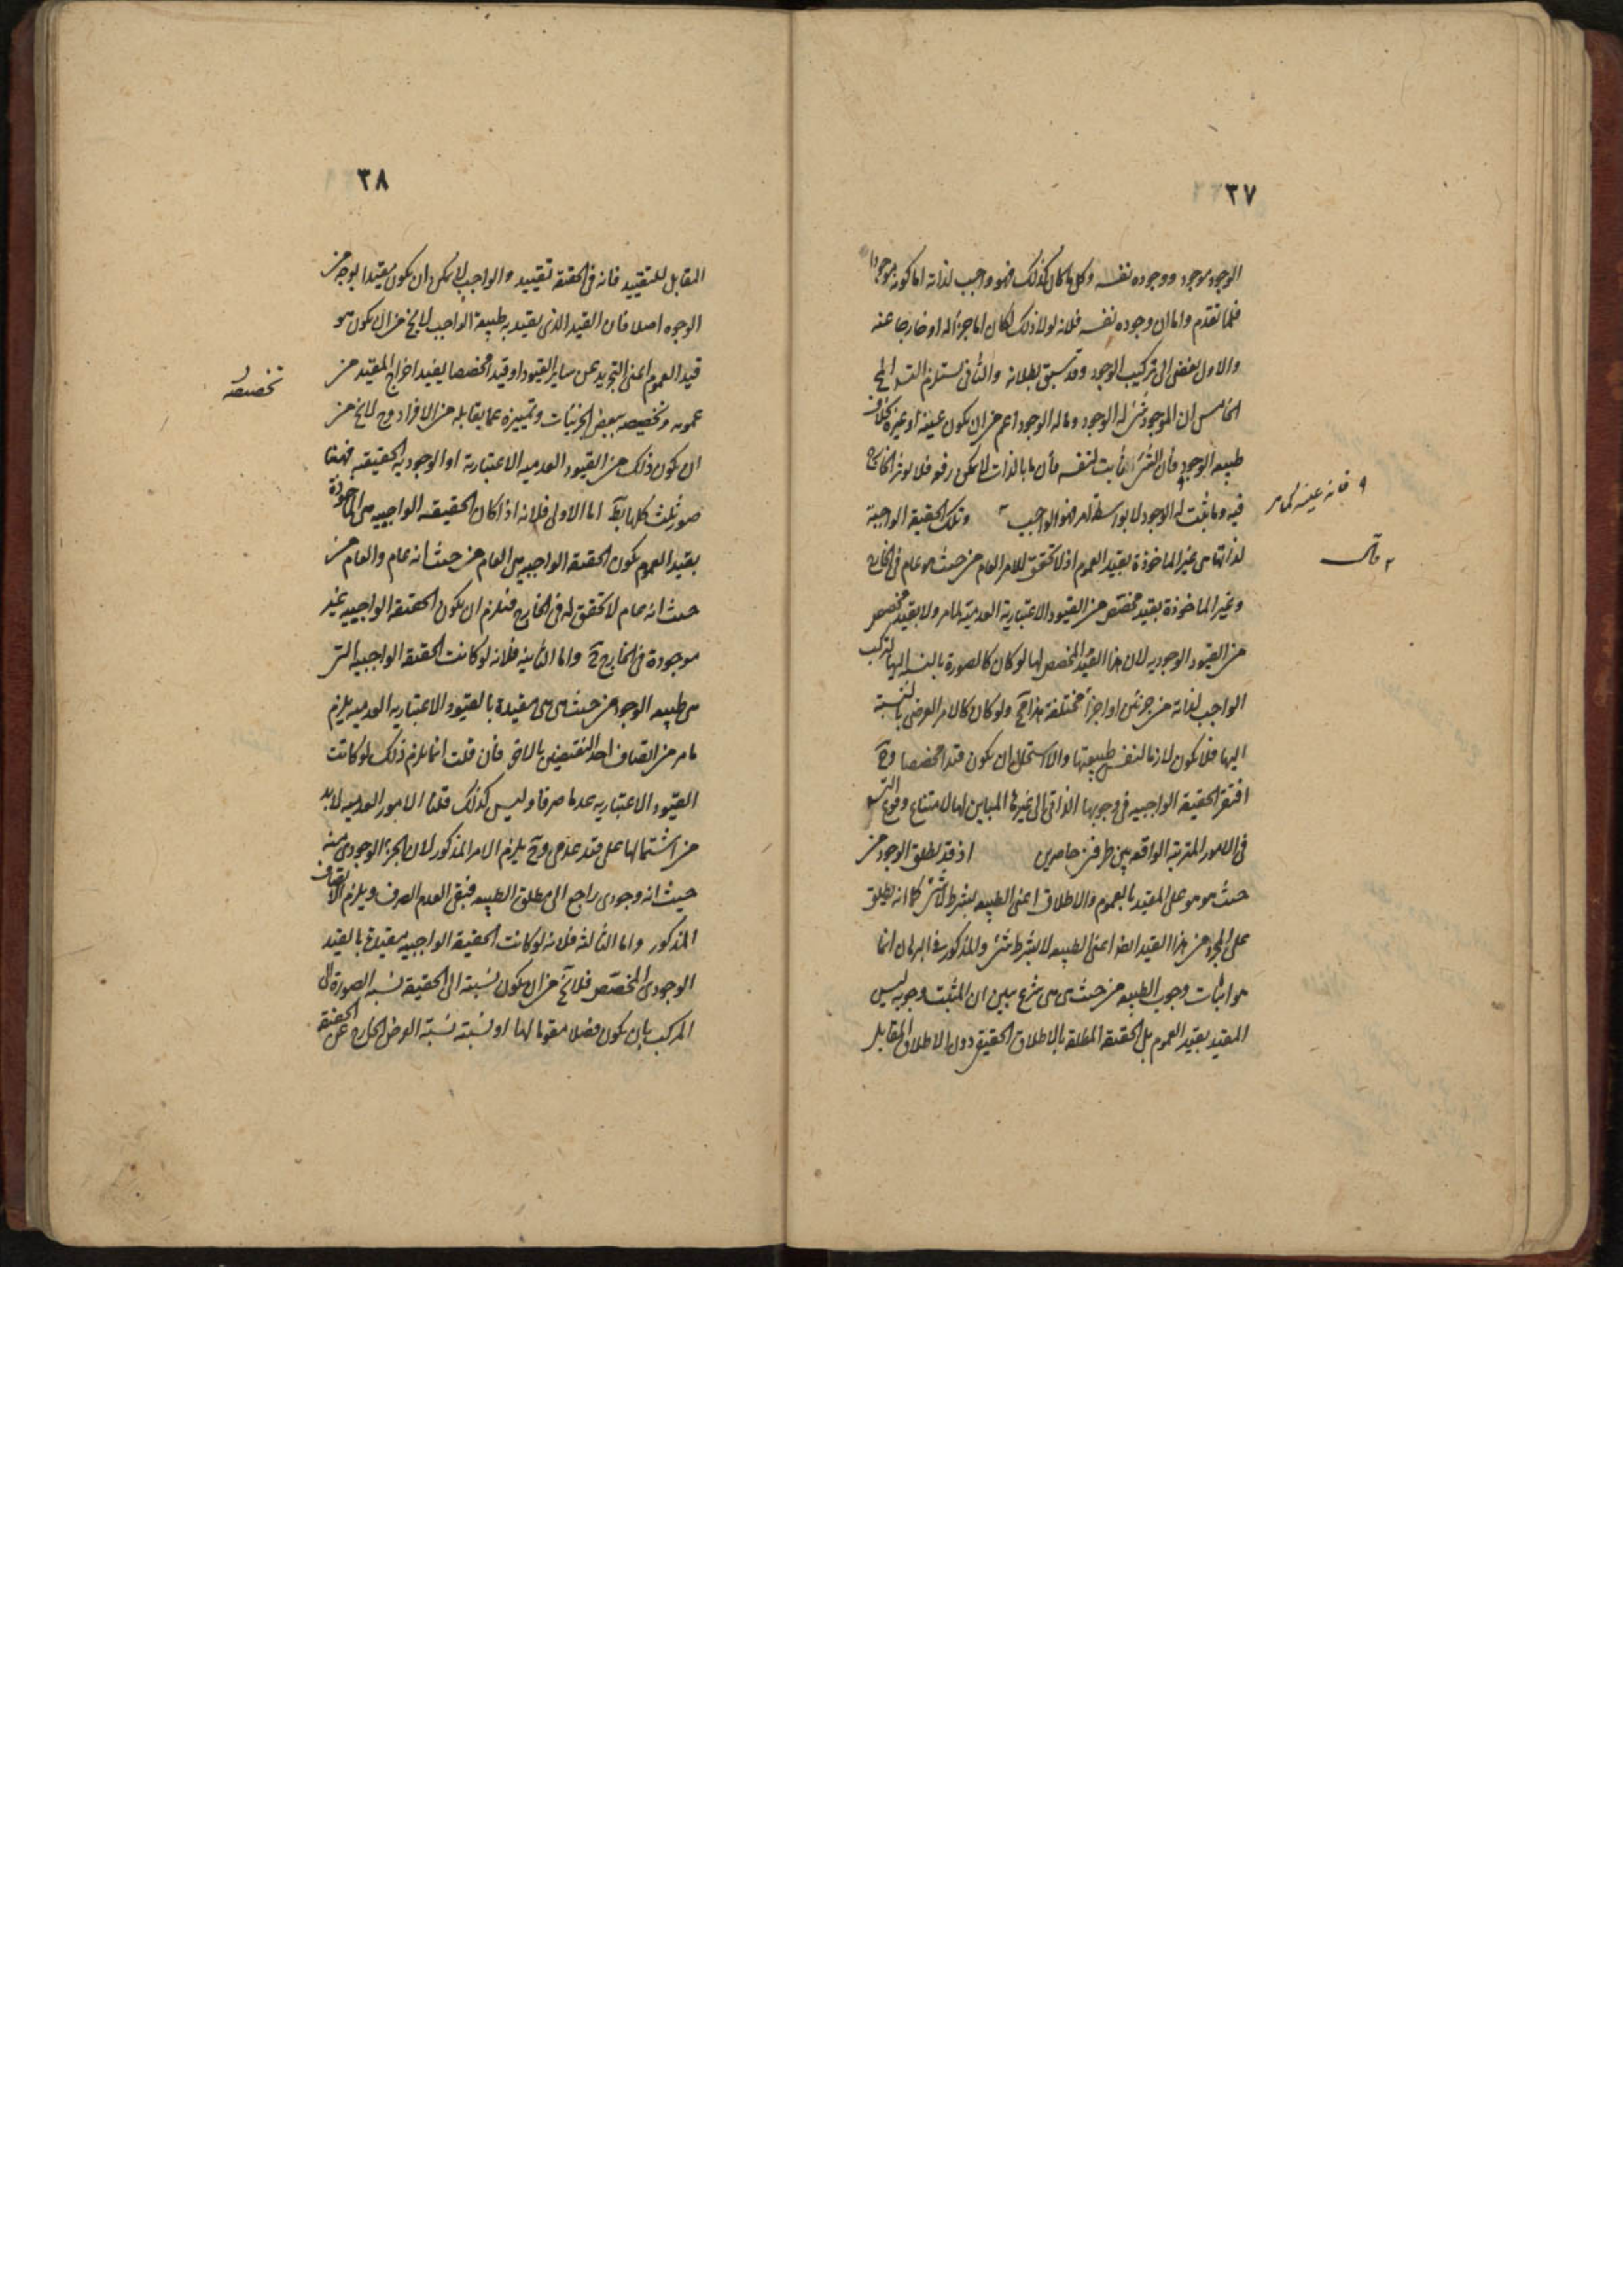 ٣٧
الوجود موجود ووجوده نفسه وكل ما كان كذلك فهو واجب لذاته اما كونه موجودا
فلما تقدم واما ان وجوده نفسه فلانه لولا ذلك لكان اما جزأ له او خارجا عنه
والاول يفضى الى تركيب الوجود وقد سبق بطلانه والثانى يستلزم التسـ المح
الخامس ان الموجود شئ له الوجود وما له الوجود اعم من ان يكون عينه او غيره بخلاف
طبيعه الوجود فان الشئ ثابت لنفسه فان ما بالذات لا يمكن رفعه فلا يؤثر
فيه وما يثبت له الوجود لا بواسطة امر فهو الواجب وتلك الحقيقة الواجبة
لذاتها هى غير الماخوذة بقيد العموم اذ لا تحقق للامر العام من حيث هو عام فى الخارج
وغير الماخوذة بقيد مختص من القيود الاعتبارية العدمية لما مر ولا بقيد مخصص
من القيود الوجوديه لان هذا القيد المخصص لها لو كان كالصورة بالنسـ اليها لتركب
الواجب لذاته من جزئين او اجزأ مختلفة هذا مح ولو كان كالامر العرضى بالنسبة
اليها فلا يكون لازما لنفس طبيعتها والا استحال ان يكون قيدا مخصصا وح
افتقر الحقيقة الواجبيه فى وجوبها الذاتى الى غيرها المباين لها لامتناع وقوع التسـ
فى الامور المترتبة الواقعه بين طرفين حاصرين اذ قد يطلق الوجود من
حيث هو هو على المقيد بالعموم والاطلاق اعنى الطبيعه بشرط لا شئ كما انه يطلق
على المجرد من هذا القيد ايضا اعنى الطبيعه لا بشرط شئ والمذكور فى البرهان انما
هو اثبات وجوب الطبيعه من حيث هى هى شرع يبين ان المثبت وجوبه ليس
المقيد بقيد العموم بل الحقيقة المطلقة بالاطلاق الحقيقى دون الاطلاق المقابل
فانه عينه كما مر
٣٨
المقابل للتقييد فانه فى الحقيقة تقييد والواجب لا يمكن ان يكون مقيدا بوجه من
الوجوه اصلا فان القيد الذى يقيد به طبيعة الواجب لا يخ من ان يكون هو
قيد العموم اعنى التجريد عن ساير القيود او قيدا مخصصا يفيد اخراج المقيد من
عمومه وتخصيصه ببعض الجزئيات وتمييزه عما يقابله من الافراد وح لا يخ من
ان يكون ذلك من القيود العدميه الاعتبارية او الوجوديه الحقيقيه فهيهنا
صور ثلث كلها بط اما الاولى فلانه اذا كان الحقيقه الواجبيه هى الماخوذة
بقيد العموم يكون الحقيقة الواجبيه هى العام من حيث انه عام والعام من
حيث انه عام لا تحقق له فى الخارج فيلزم ان يكون الحقيقة الواجبيه غير
موجودة فى الخارج واما الثانية فلانه لو كانت الحقيقه الواجبيه التى
هى طبيعه الوجود من حيث هى هى مقيدة بالقيود الاعتباريه العدميه يلزم
ما مر من اتصاف احد النقيضين بالاخر فان قلت انما يلزم ذلك لو كانت
القيود الاعتباريه عدما صرفا وليس كذلك قلنا الامور العدميه لابد
من اشتمالها على قيد عدمى وح يلزم الامر المذكور لان الجزء الوجودى منه
حيث انه وجودى راجع الى مطلق الطبيعه فبقى العدم الصرف ويلزم الاتصاف
المذكور واما الثالثه فلانه لو كانت الحقيقة الواجبيه مقيدة بالقيد
الوجودى المخصص فلا يخ من ان يكون نسبته الى الحقيقة نسبه الصورة الى
المركب بان يكون فصلا مقوما لها او نسبته نسبة العرض الخارج عن الحقيقة
تخصيصه